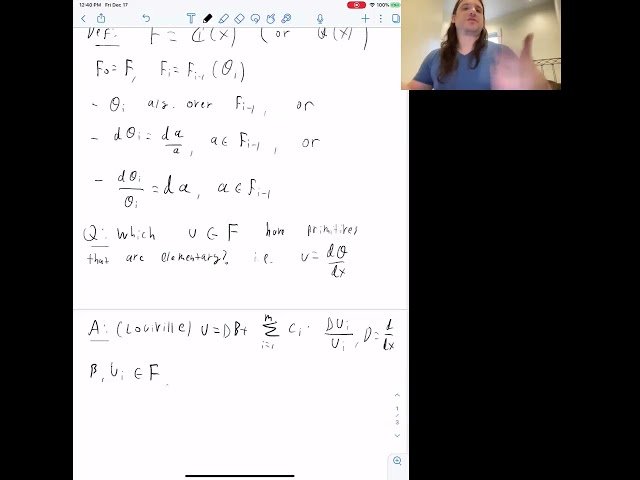 12:40 PM Fri Dec 17
100%
Def: F = ℂ(x) (or Q(x))
F₀ = F, Fᵢ = Fᵢ₋₁(θᵢ)
- θᵢ alg. over Fᵢ₋₁, or
- dθᵢ = da/a, a ∈ Fᵢ₋₁, or
- dθᵢ/θᵢ = da, a ∈ Fᵢ₋₁
Q: Which υ ∈ F have primitives
that are elementary? i.e. υ = dθ/dx
A: (Louiville) υ = DB + Σᵢ₌₁ᵐ Cᵢ · DUᵢ/Uᵢ, D = d/dx
B, Uᵢ ∈ F.
1
3